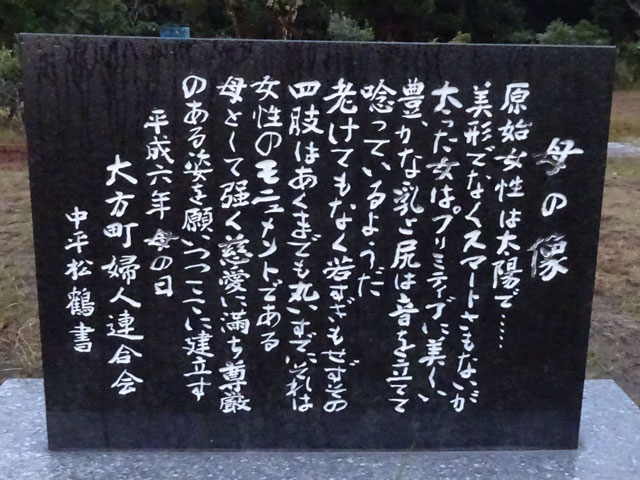 母の像
原始女性は太陽で……
美形でなくスマートさもないが
太った女はプリミティブに美しい
豊かな乳と尻は音を立てて
唸っているようだ
老けてもなく若すぎもせずその
四肢はあくまでも丸いすでにそれは
女性のモニュメントである
母として強く慈愛に満ち尊厳
のある姿を願いつつここに建立す
平成六年母の日
大方町婦人連合会
中平松鶴書